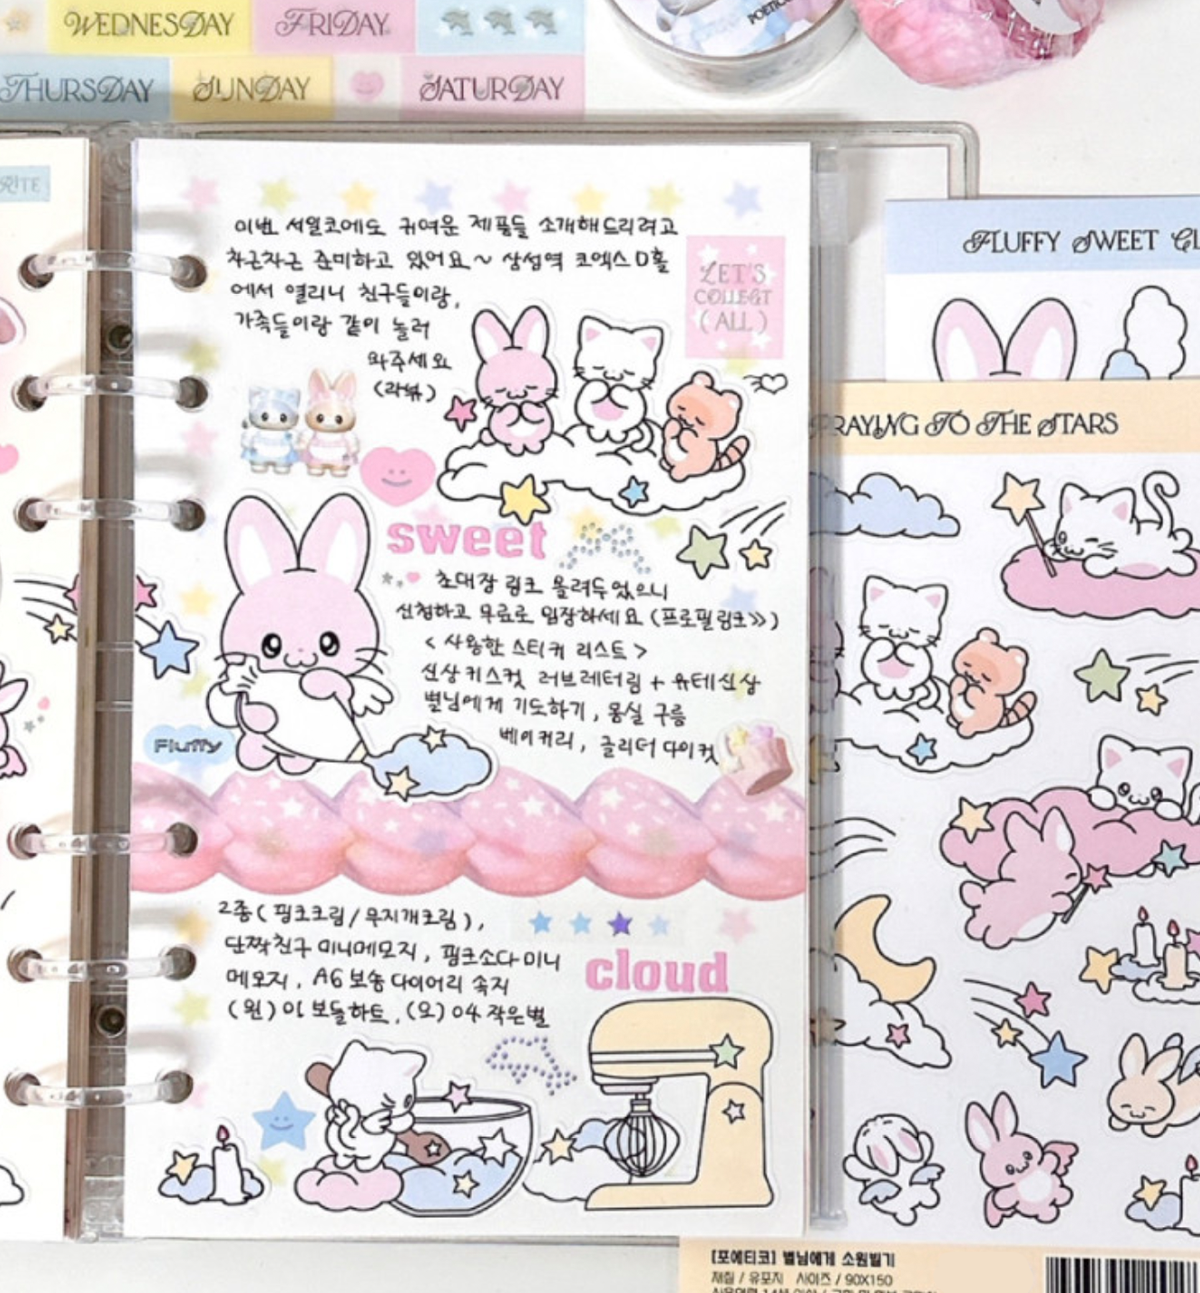 WEDNESDAY
FRIDAY
THURSDAY
SUNDAY
SATURDAY
이번 서일코에도 귀여운 제품들 소개해드리려고
차근차근 준비하고 있어요~ 삼성역 코엑스 D홀
에서 열리니 친구들이랑,
가족들이랑 같이 놀러
와주세요
LET'S
COLLECT
(ALL)
sweet
초대장 링크 올려두었으니
신청하고 무료로 입장하세요 (프로필링크》)
<사용한 스티커 리스트>
신상키스컷 러브레터링 + 유테신상
별님에게 기도하기, 몽실 구름
베이커리, 글리터 다이컷
Fluffy
2종(핑크크림/무지개크림),
단짝친구 미니메모지, 핑크소다 미니
메모지, A6 보송 다이어리 속지
(왼) 01 보들하트, (오) 04 작은별
cloud
FLUFFY SWEET CL
PRAYING TO THE STARS
[포에티코] 별님에게 소원빌기
재질 / 유포지 사이즈 / 90X150